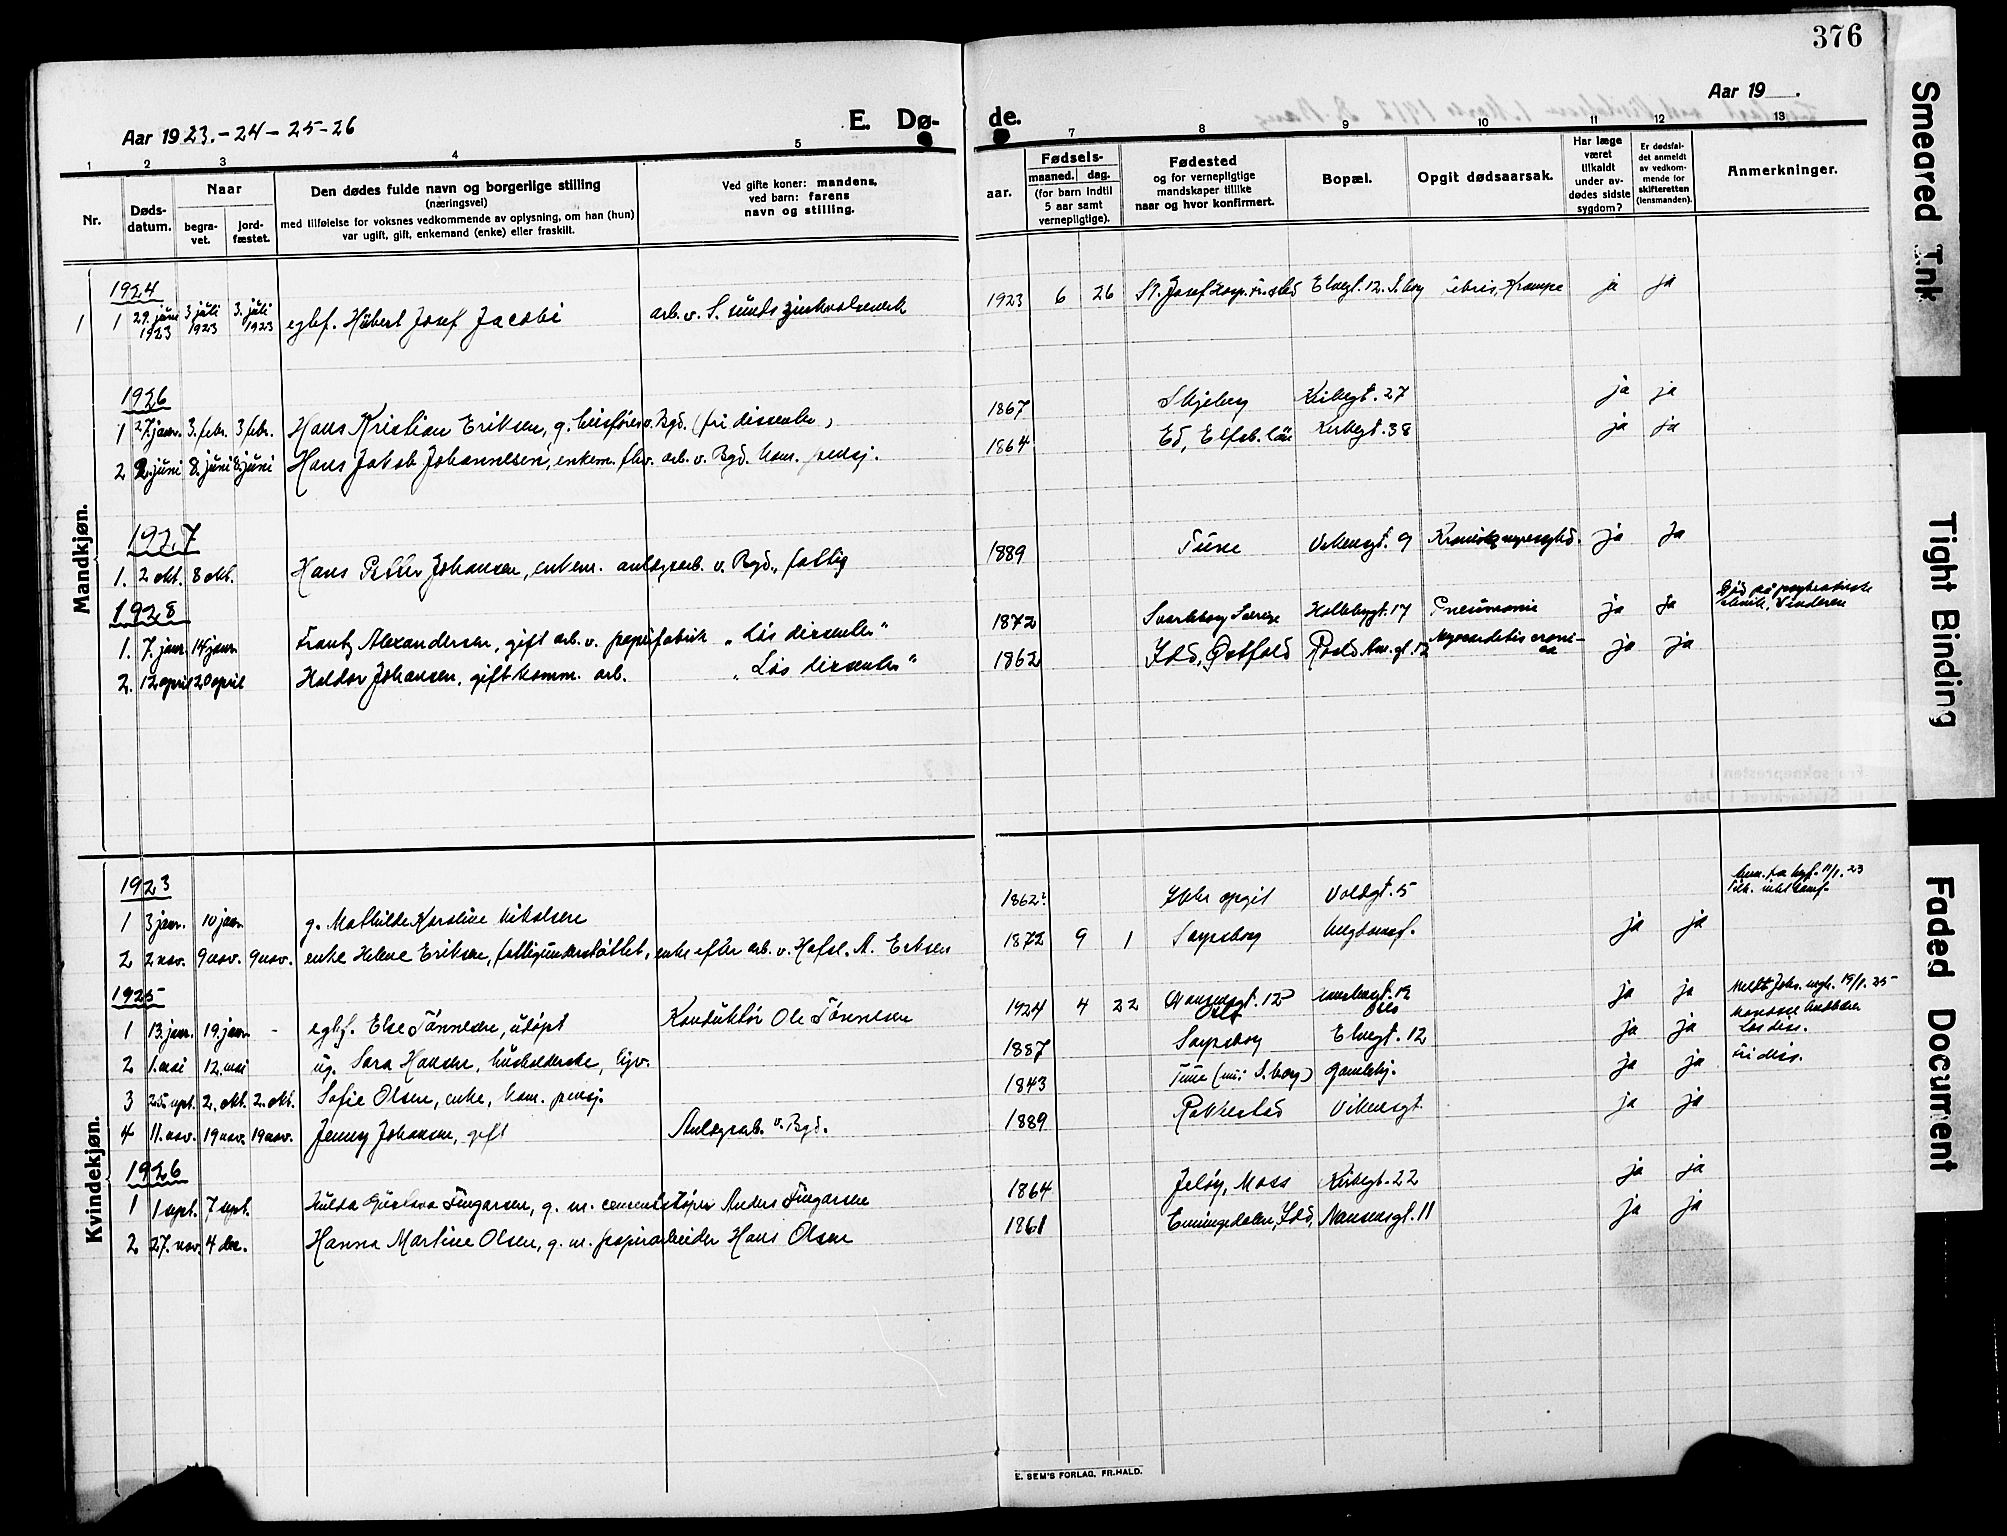 376
Aar 1923.-24-25-26
E. Dø-
de.
Aar 19 .
1 2 3 4 5
7 8 9 10 11 12 13
Nr.
Døds-
datum.
Naar
begra-
vet.
jord-
fæstet.
Den dødes fulde navn og borgerlige stilling
(næringsvei)
med tilføielse for voksnes vedkommende av oplysning, om han (hun)
var ugift, gift, enkemand (enke) eller fraskilt.
Ved gifte koner: mandens,
ved barn: farens
navn og stilling.
aar.
Fødsels-
maaned. dag.
(for barn indtil
5 aar samt
vernepligtige).
Fødested
og for vernepligtige
mandskaper tillike
naar og hvor konfirmert.
Bopæl.
Opgit dødsaarsak.
Har læge
været
tilkaldt
under av-
dødes sidste
sygdom?
Er dødsfal-
det anmeldt
av vedkom-
mende for
skifteretten
(lensmanden).
Anmerkninger.
Mandkjøn.
1924
1 1 29. juni 1923 3 juli 1923 3. juli 1923 egbf. Hübert Josef Jacobi arb. v. S. sunds zinkvalseverk 1923 6 26 St. Josef Elvegt. 12. S.borg Krampe ja ja
1926
1 27. jan. 3. febr. 3 febr. Hans Kristian Eriksen, g. heisfører v. Bgd. (fri dissenter) 1867 Skjeberg Kirkegt. 27 ja ja
2 2. juni 8. juni 8. juni Hans Jakob Johannesen, enkem. fhv. arb. v. Bgd. kom. pensj. 1864 Ed, Elfsb. län Kirkegt. 38 ja ja
1927
1. 2 okt. 8 okt. Hans Petter Johansen, enkem. anlægsarb. v. Bgd., fattig 1889 Tune Vikensgt. 9 Kronisk nyresygd. ja ja
1928
1. 7. jan. 14 jan. Frantz Alexandersen, gift arb. v. papirfabrik „Løs dissenter" 1872 Svarteborg Sverige Hallebygt. 17 Pneumonie ja ja Død på psykiatriske klinik, Vinderen
2. 12 april 20 april Haldor Johansen, gift komm. arb. „Løs dissenter" 1862 Idd, Østfold Roald Am. gt. 12 Myocarditis cronica ja ja
Kvindekjøn.
1923
1 3 jan. 10 jan. g. Mathilde Karoline Nikolsen 1862? Ikke opgit Voldgt. 5
2 2 nov. 9 nov. 9 nov. enke Helene Eriksen, fattigunderstøttet, enke efter arb. v. Hafsl. A. Eriksen 1872 9 1 Sarpsborg ja ja
1925
1 13. jan. 19. jan. - egtf. Else Tønnesen, udøpt Konduktør Ole Tønnesen 1924 4 22 Oslo Oslo ja ja
2 1. mai 12. mai ug. Sara Hansen, husholderske, 1887 Sarpsborg Elvegt. 12 ja ja Løs diss.
3 25. sept. 2. okt. 2. okt. Sofie Olsen, enke, kom. pensj. 1843 Tune (nu: S.borg) Gamlehj. ja ja Fri diss.
4 11. nov. 19 nov. 19 nov. Jenny Johansen, gift Anlægsarb. v. Bgd. 1889 Rakkestad Vikensgt. ja ja
1926
1 1 sept. 7 sept. Hulda Gustava Fingarsen, g. m. cementstøper Anders Fingarsen 1864 Jeløy, Moss Kirkegt. 22 ja ja
2 27. nov. 4 des. Hanna Martine Olsen, g. m. papirarbeider Hans Olsen 1861 Enningedalen, Idd, Nansensgt. 11 ja ja
E. SEM'S FORLAG, FR.HALD.
Smeared Ink
Tight Binding
Faded Document